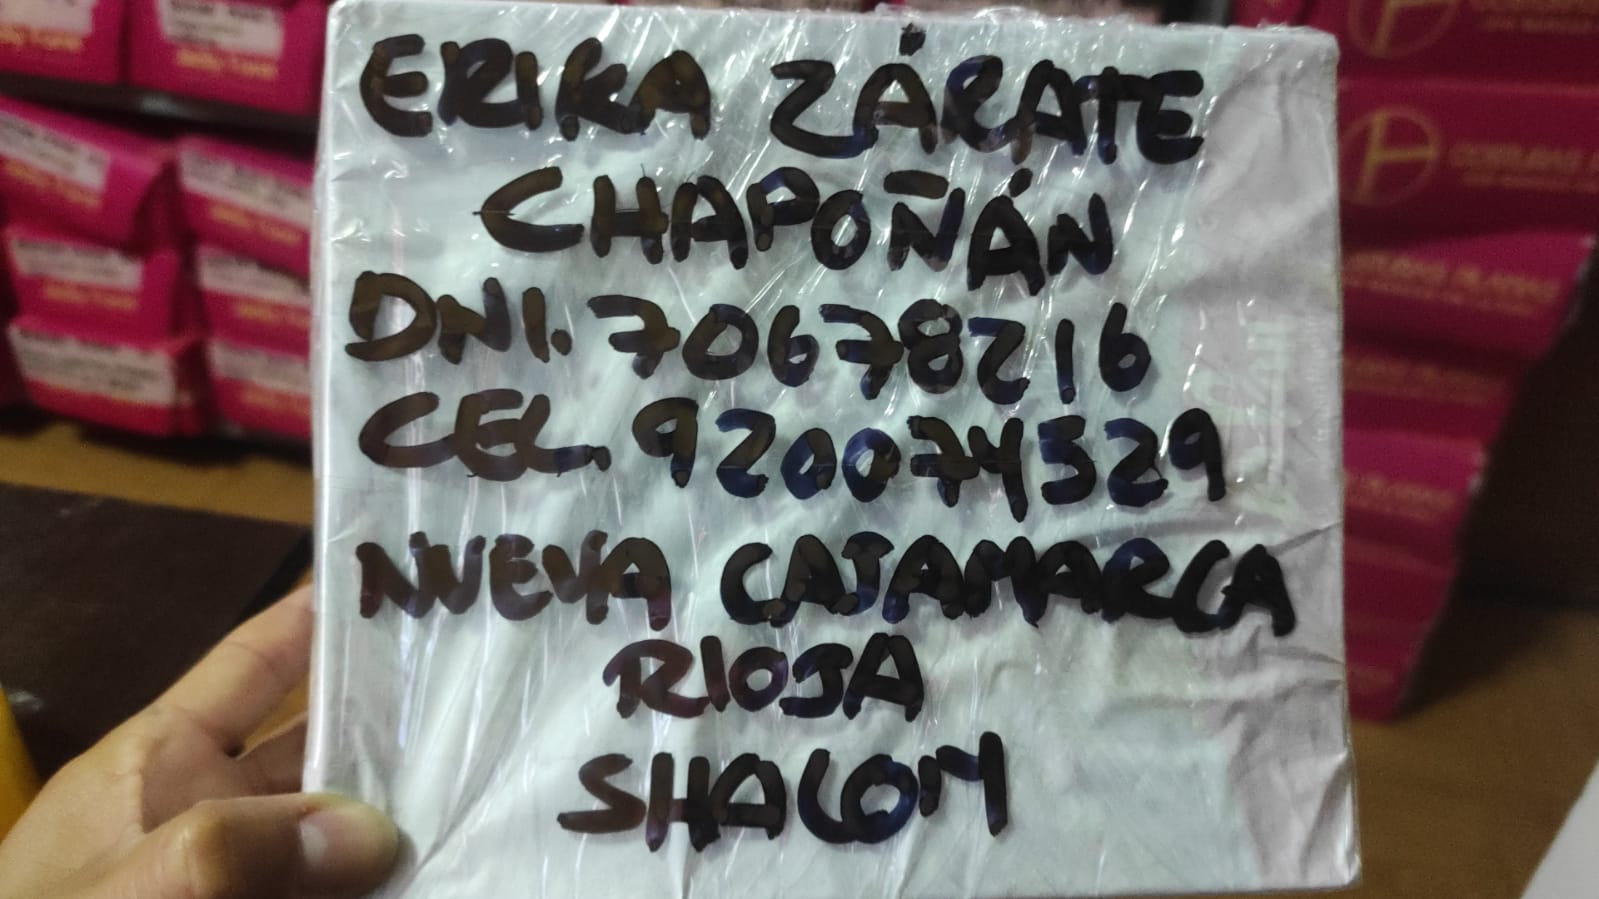 ERIKA ZÁRATE
CHAPOÑÁN
DNI. 70678216
CEL. 920074529
NUEVA CAJAMARCA
RIOJA
SHALOM